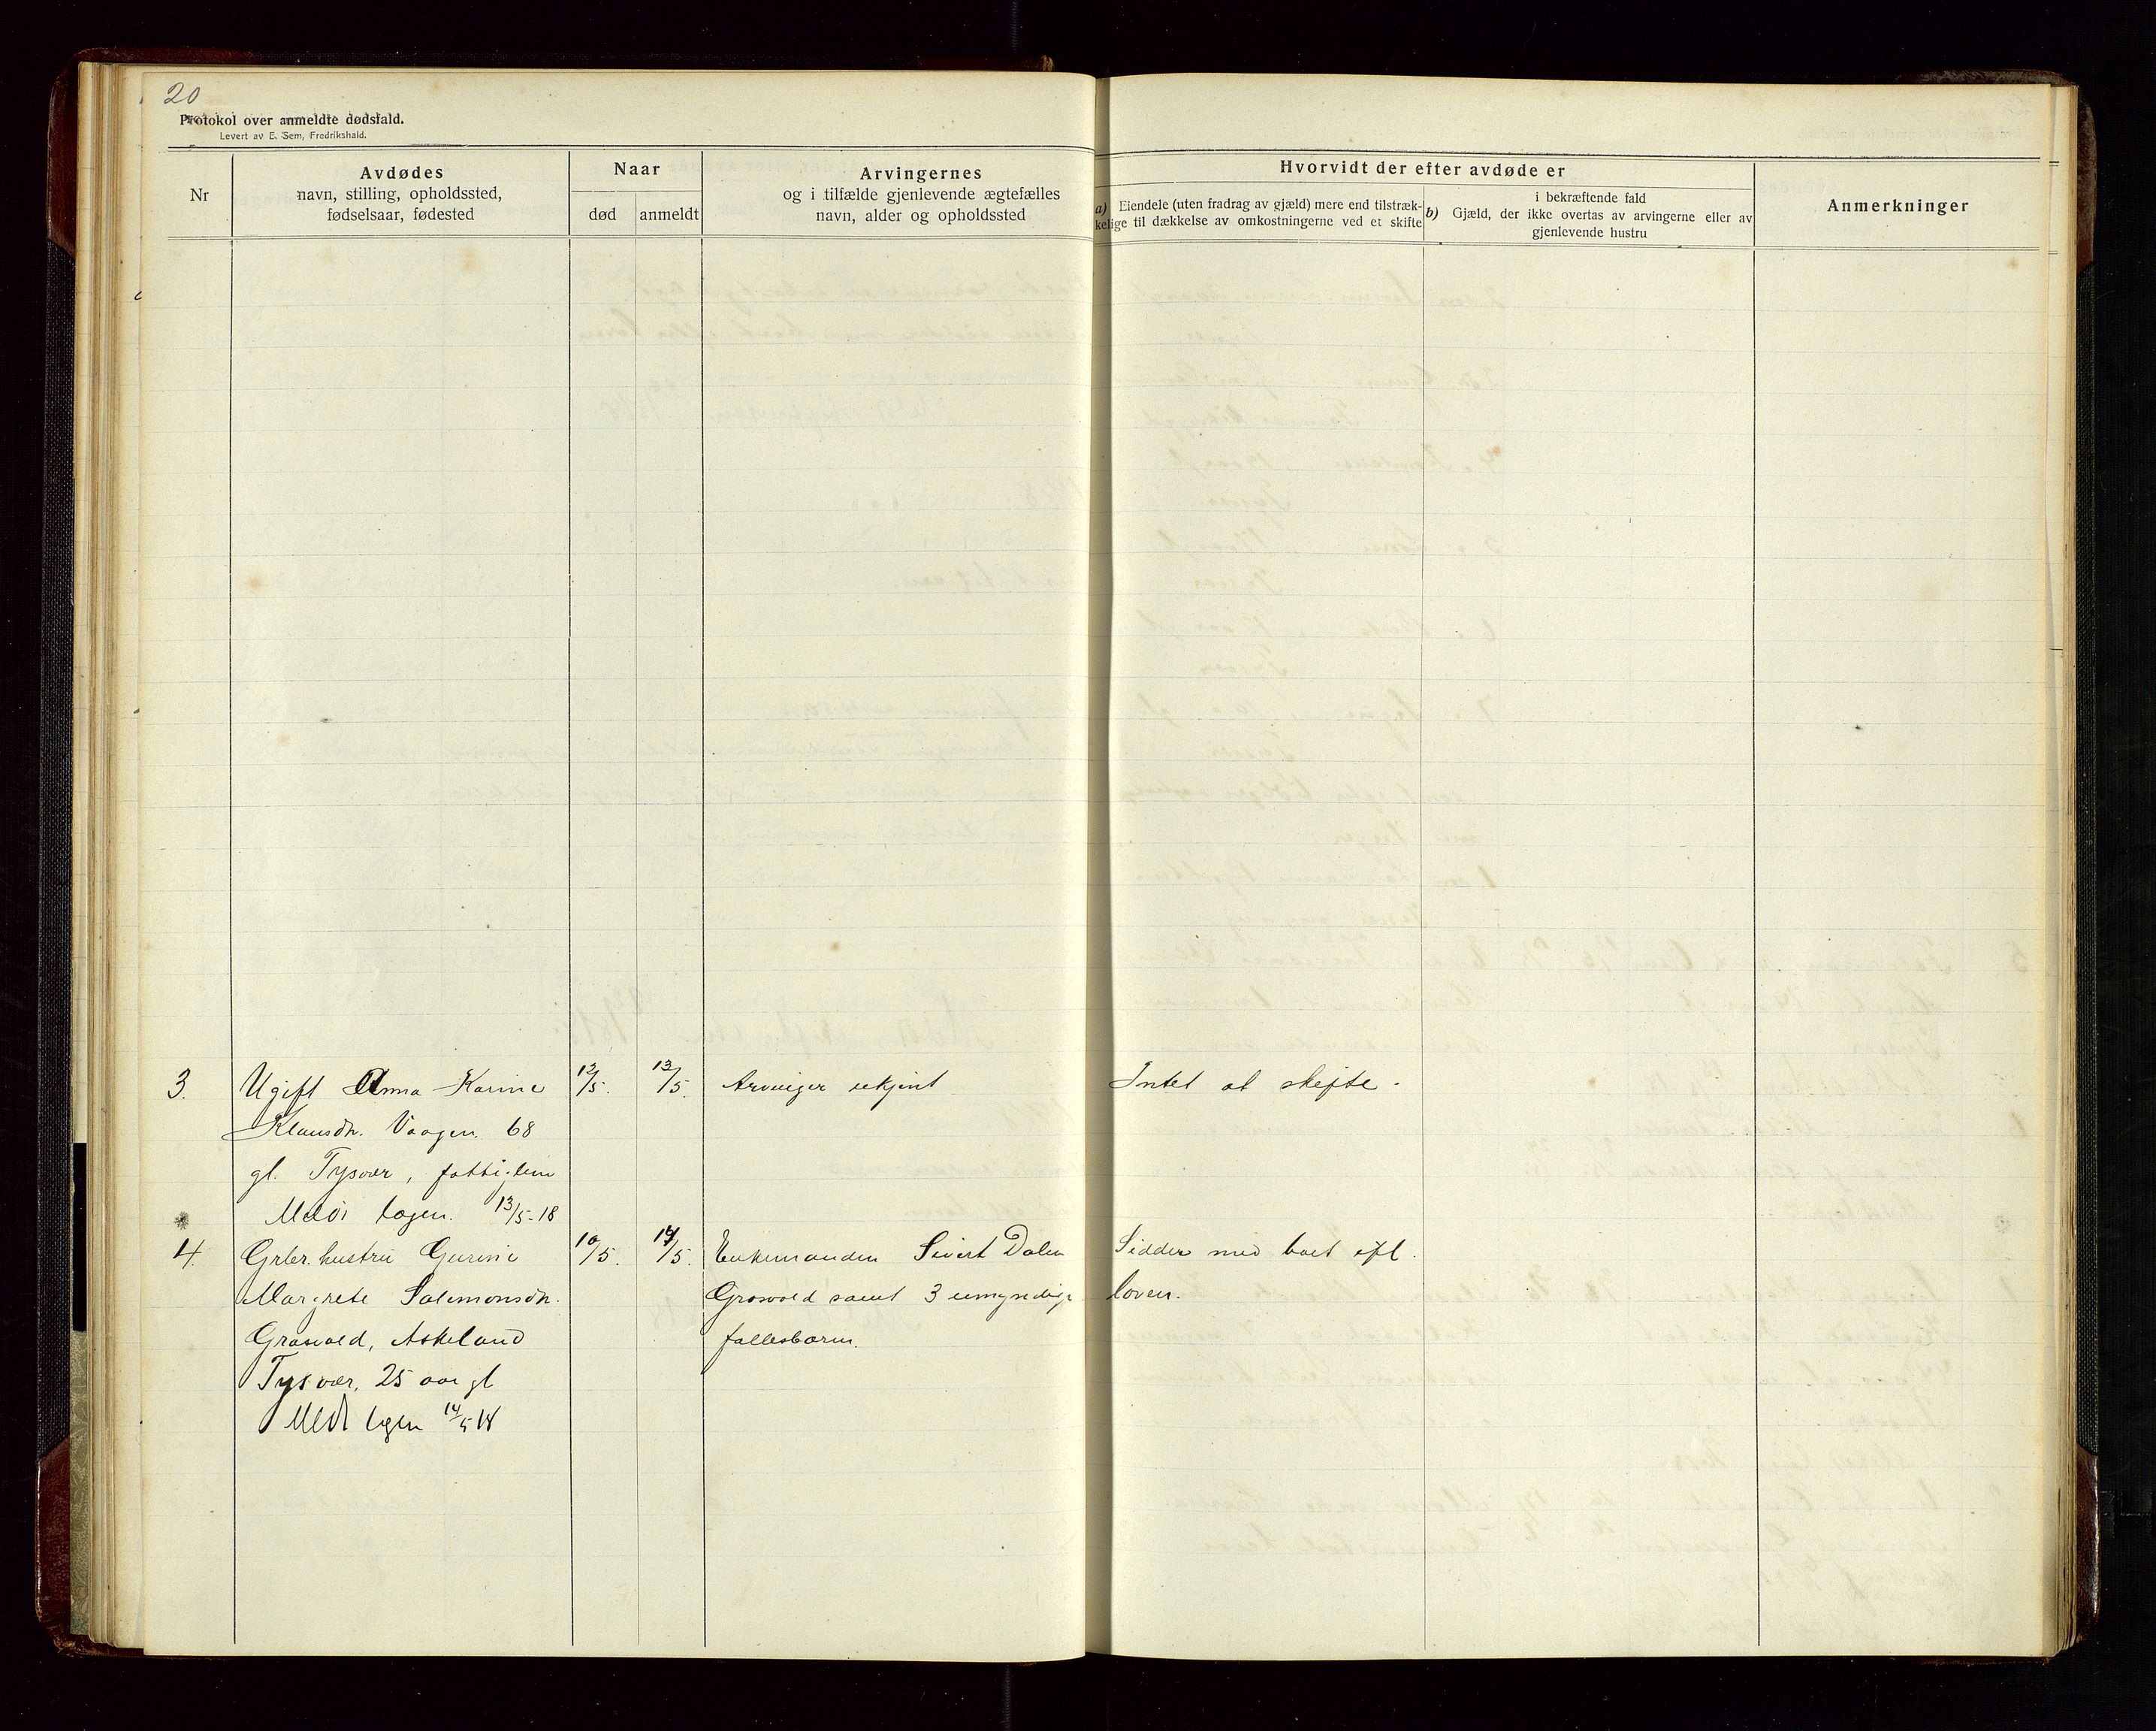 20
Protokol over anmeldte dødsfald.
Levert av E. Sem, Fredrikshald.
Nr
Avdødes
navn, stilling, opholdssted,
fødselsaar, fødested
Naar
død
anmeldt
Arvingernes
og i tilfælde gjenlevende ægtefælles
navn, alder og opholdssted
Hvorvidt der efter avdøde er
a) Eiendele (uten fradrag av gjæld) mere end tilstræk-
kelige til dækkelse av omkostningerne ved et skifte
b) i bekræftende fald
Gjæld, der ikke overtas av arvingerne eller av
gjenlevende hustru
Anmerkninger
3. Ugift Anna Karine 12/5. 13/5. Arvinger ukjent Intet at skifte.
Klausdtr. Vaagen 68
gl. Tysvær, fattiglem
Meddt lægen. 13/5-18
4. Grbr. hustru Gurine 10/5. 14/5. Enkemanden Sivert Dalen Sidder med boet efl.
Margrete Salemonsdtr. Grosvold samt 3 umyndige loven.
Grosvold, Askeland fællesbarn.
Tysvær, 25 aar gl
Meddt lægen 14/5 18